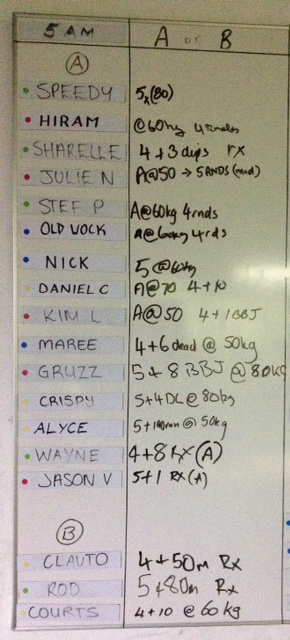 5 AM A or B
A
SPEEDY 5 (80)
HIRAM @60kg 4 rnds
SHARELLE 4 + 3 dips rx
JULIE N A@50 → 5 RNDS (mod)
STEF P A@60kg 4rnds
OLD VOCK a@60kg 4rds
NICK 5 @60kg
DANIEL C A@70 4+10
KIM L A@50 4+1BBJ
MAREE 4+6dead @ 50kg
GRUZZ 5+8 BBJ @ 80kg
CRISPY 5+4DL@80kg
ALYCE 5+ @ 50kg
WAYNE 4+8 RX (A)
JASON V 5+1 RX (A)
B
CLAUTO 4+50m Rx
ROD 5+80m Rx
COURTS 4+10 @ 60 kg